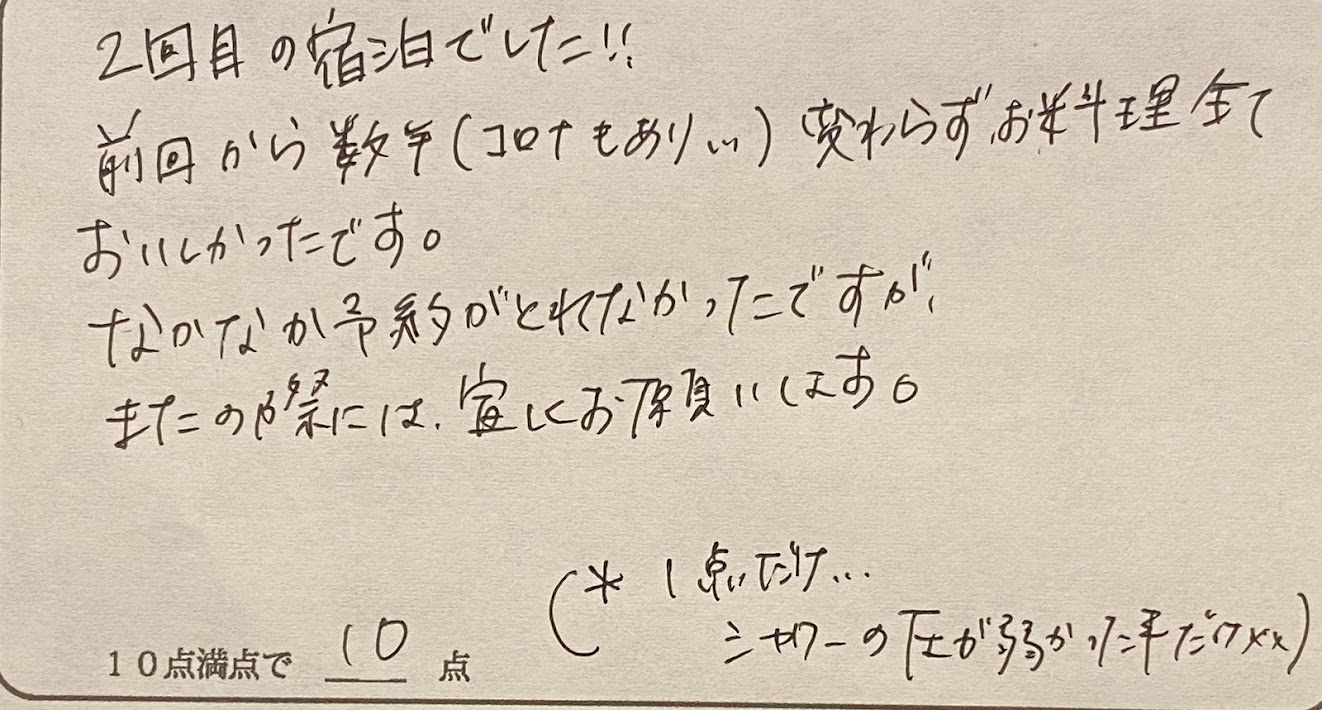 2回目の宿泊でした!!
前回から数年(コロナもあり...)変わらずお料理全て
おいしかったです。
なかなか予約がとれなかったですが、
またの際には、宜しくお願いします。
(* 1点だけ...
シャワーの圧が弱かった事だけ××)
10点満点で 10 点